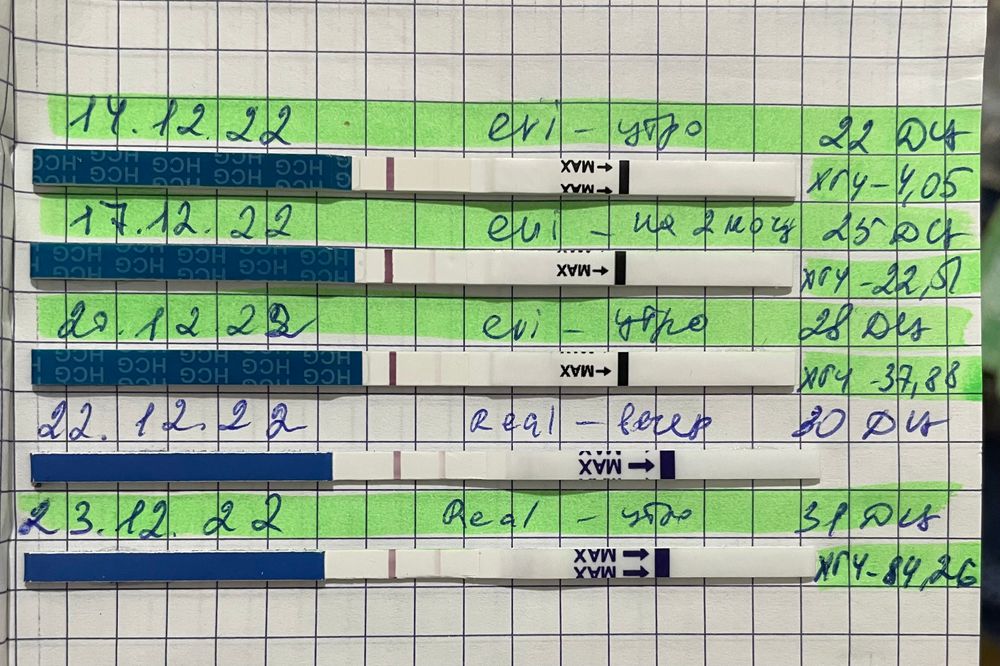 14.12.22 evi - утро 22 ДЦ
HCG HCG HCG HCG HCG HCG MAX MAX ХГЧ-4,05
17.12.22 evi - на 2 мочу 25 ДЦ
HCG HCG HCG HCG HCG HCG MAX ХГЧ-22,51
20.12.22 evi - утро 28 ДЦ
HCG HCG HCG HCG HCG HCG MAX ХГЧ-37,88
22.12.22 Real - вечер 30 ДЦ
MAX
23.12.22 Real - утро 31 ДЦ
MAX MAX ХГЧ-84,26